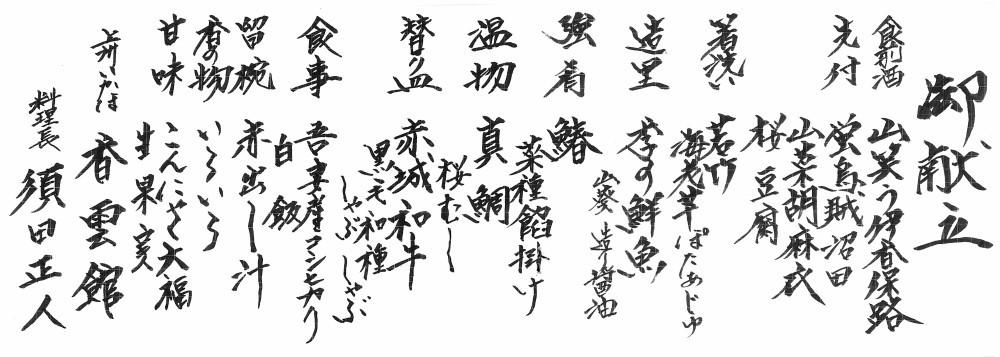 御献立
食前酒
山笑う伊香保路
先付
蛍烏賊沼田
山菜胡麻衣
桜豆腐
箸洗い
若竹
海老芋ぽたあじゅ
造里
季の鮮魚
山葵 造り醤油
強肴
鰆
菜種餡掛け
温物
真鯛
桜むし
替り皿
赤城和牛
黒毛和種
しゃぶしゃぶ
食事
吾妻産コシヒカリ
白飯
留椀
赤出し汁
香の物
いろいろ
甘味
こんにゃく大福
生果実
上州いかほ
香雲館
料理長
須田正人